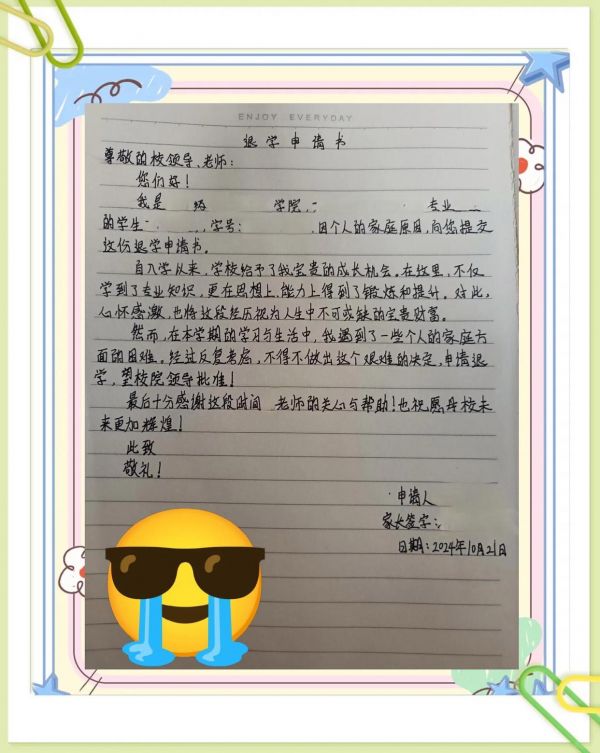 ENJOY EVERYDAY
退学申请书
尊敬的校领导、老师:
您们好!
我是 级 学院, 专业
的学生 , 学号: , 因个人的家庭原因,向您提交
这份退学申请书。
自入学从来,学校给予了我宝贵的成长机会。在这里,不仅
学到了专业知识,更在思想上、能力上得到了锻炼和提升。对此,
心怀感激,也将这段经历视为人生中不可或缺的宝贵财富。
然而,在本学期的学习与生活中,我遇到了一些个人的家庭方
面的困难。经过反复考虑,不得不做出这个艰难的决定,申请退
学,望校院领导批准!
最后十分感谢这段时间 老师的关心与帮助!也祝愿母校未
来更加辉煌!
此致
敬礼!
申请人
家长签字:
日期:2024年10月21日